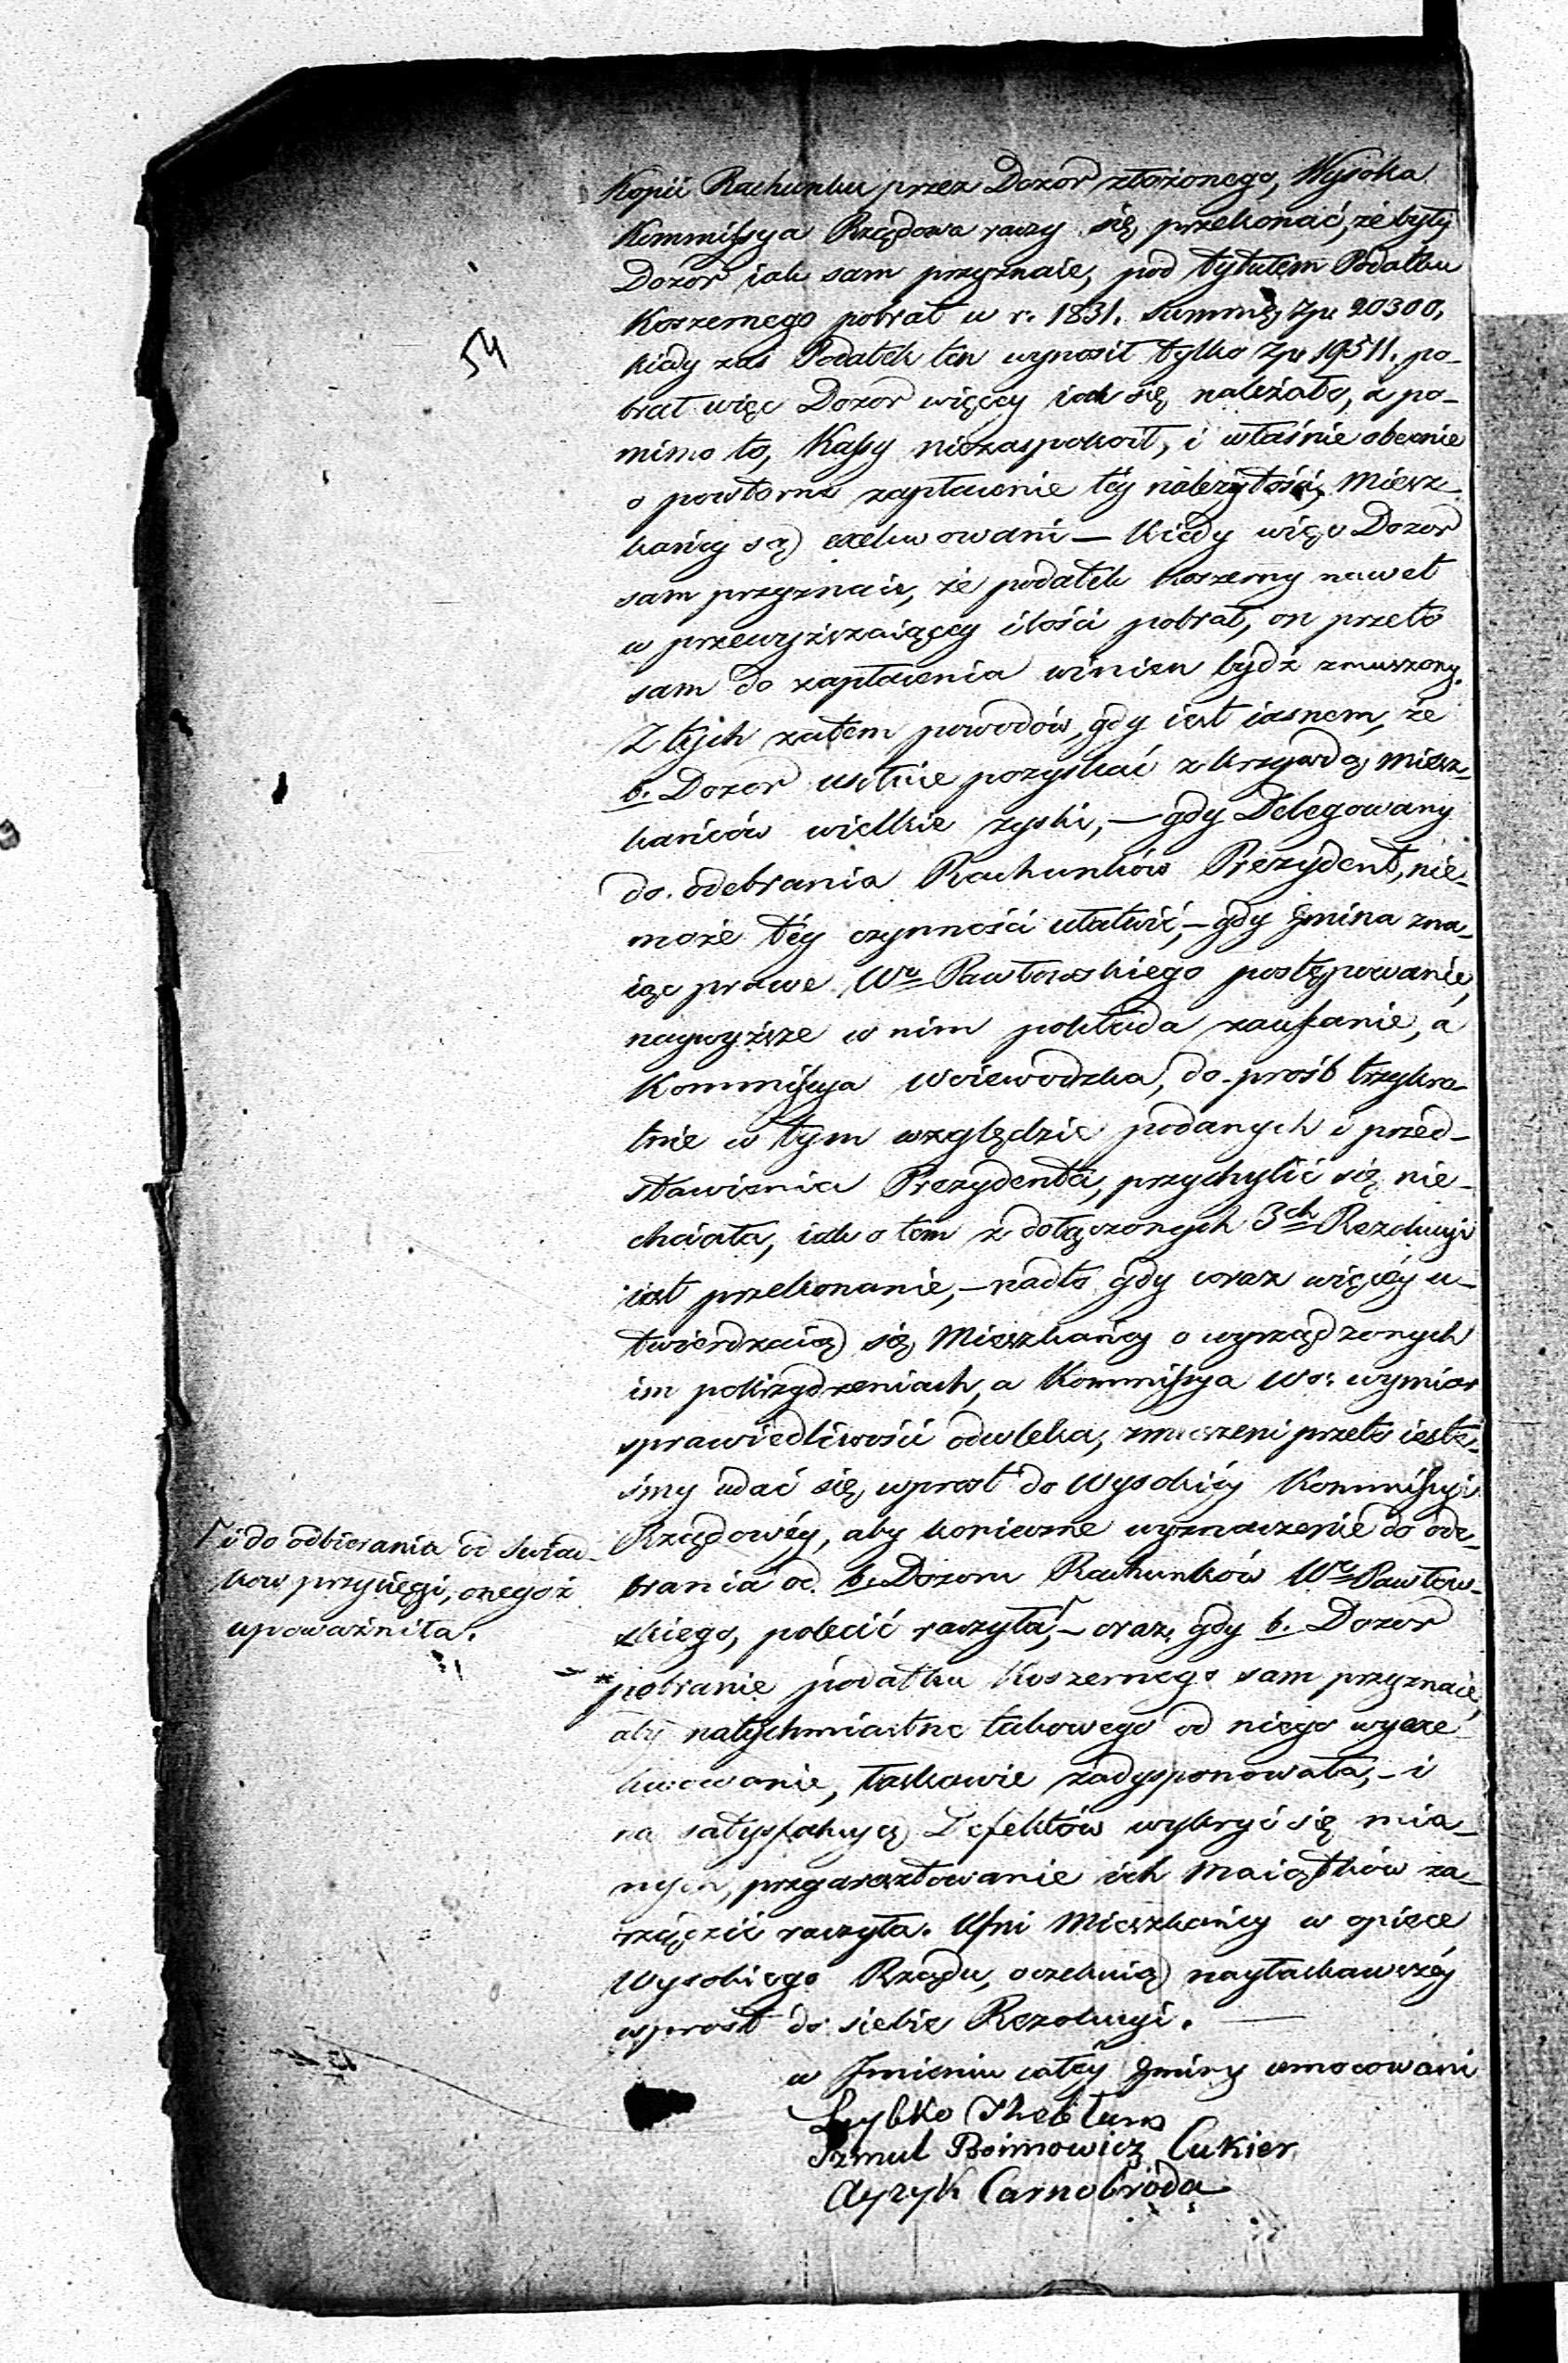 54
Kopii Rachunku przez Dozor złożonego, Wysoka
Kommissya Rządowa raczy się przekonać, że były
Dozor iak sam przyznaie, pod tytułem Podatku
Koszernego pobrał w r. 1831. Summę Zp. 20300.
kiedy zaś Podatek ten wynosił tylko Zp. 19511. po-
brał więc Dozor więcey iak się należało, a po-
mimo to, Kassy niezaspokoił, i właśnie obecnie
o powtórne zapłacenie téy należytości, Miesz-
kańcy są exekwowani — Kiedy więc Dozor
sam przyznaie, że podatek koszerny nawet
w przewyższaiącey ilości pobrał, on przeto
sam do zapłacenia winien bydź zmuszony.
Z tych zatem powodów, gdy iest iasnem, że
b. Dozor usiłuie pozyskać z krzywdą miesz-
kańców wielkie zyski, — gdy Delegowany
do odebrania Rachunków Prezydent, nie-
może téy czynności ułatwić, — gdy Gmina zna-
iąc prawe Wo Pawłowskiego postępowanie,
naywyższe w nim pokłada zaufanie, a
Kommissya Woiewodzka, do prośb trzykro-
tnie w tym względzie podanych i przed-
stawienia Prezydenta, przychylić się nie-
chciała, iak o tem z dołączonych 3ch Rezolucyi
iest przekonanie, — nadto gdy coraz więcéy u-
twierdzaią się Mieszkańcy o wyrządzonych
im pokrzydzeniach, a Kommissya Wo: wymiar
sprawiedliwości odwleka, zmuszeni przeto ieste-
śmy udać się wprost do Wysokiéy Kommissyi
Rządowéy, aby konieczne wyznaczenie do ode-
brania od b. Dozoru Rachunków Wo Pawłow-
skiego, polecić raczyła, Γ — oraz, gdy b. Dozor
Γ i do odbierania od świad-
ków przysięgi, onegoż
upoważniła.
* pobranie podatku Koszernego sam przyznaie,
aby natychmiastne takowego od niego wyexe-
kwowanie, łaskawie zadysponowała, — i
na satysfakcyą Defektów wykryć się mia-
nych, przyaresztowanie ich Maiątków za-
rządzić raczyła. Ufni Mieszkańcy w opiece
Wysokiego Rządu, oczekuią nayłaskawszéy
wprost do siebie Rezolucyi. —
w Imieniu całéy Gminy umocowani
Szmul Boimowicz Cukier
Ayzyk Carnobroda